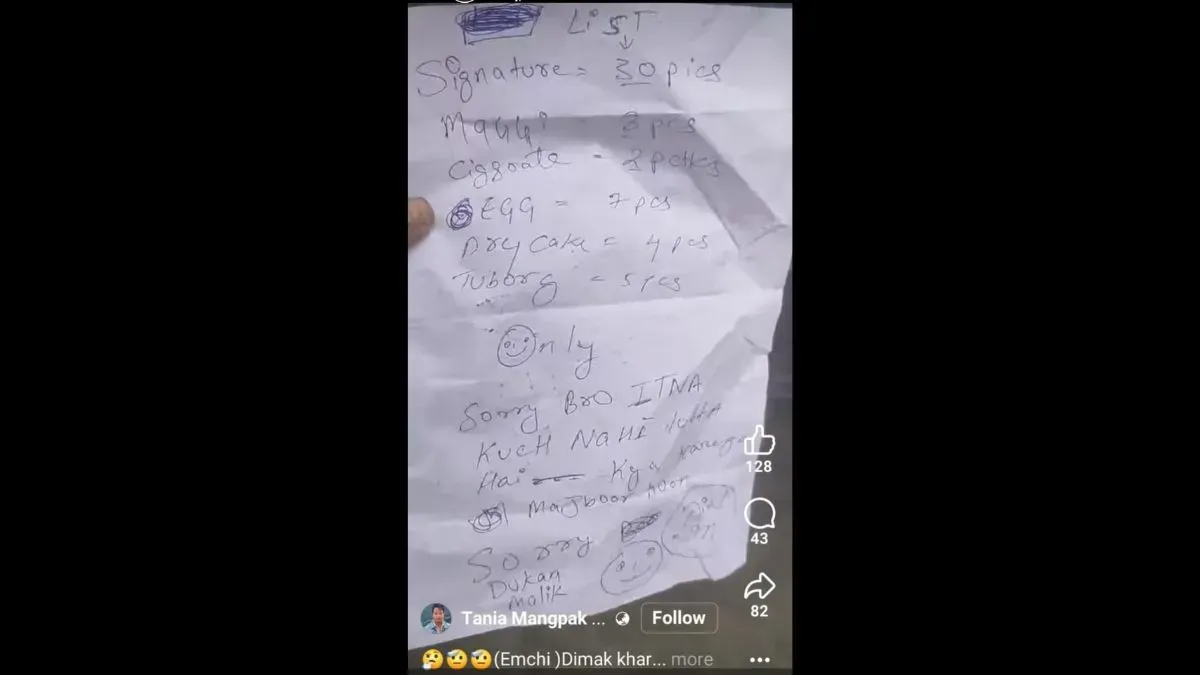 LiST
Signature = 30 pics
MaGGi = 3 pcs
Ciggoate = 2 pctks
EGG = 7 pcs
Dry Cake = 4 pcs
Tuborg = 5 pcs
Only
Sorry Bro ITNA
KUCH NaHI
Hai Kya
Majboor hoon
Sorry
Dukan
Malik
128
43
82
Tania Mangpak ... Follow
(Emchi )Dimak khar... more